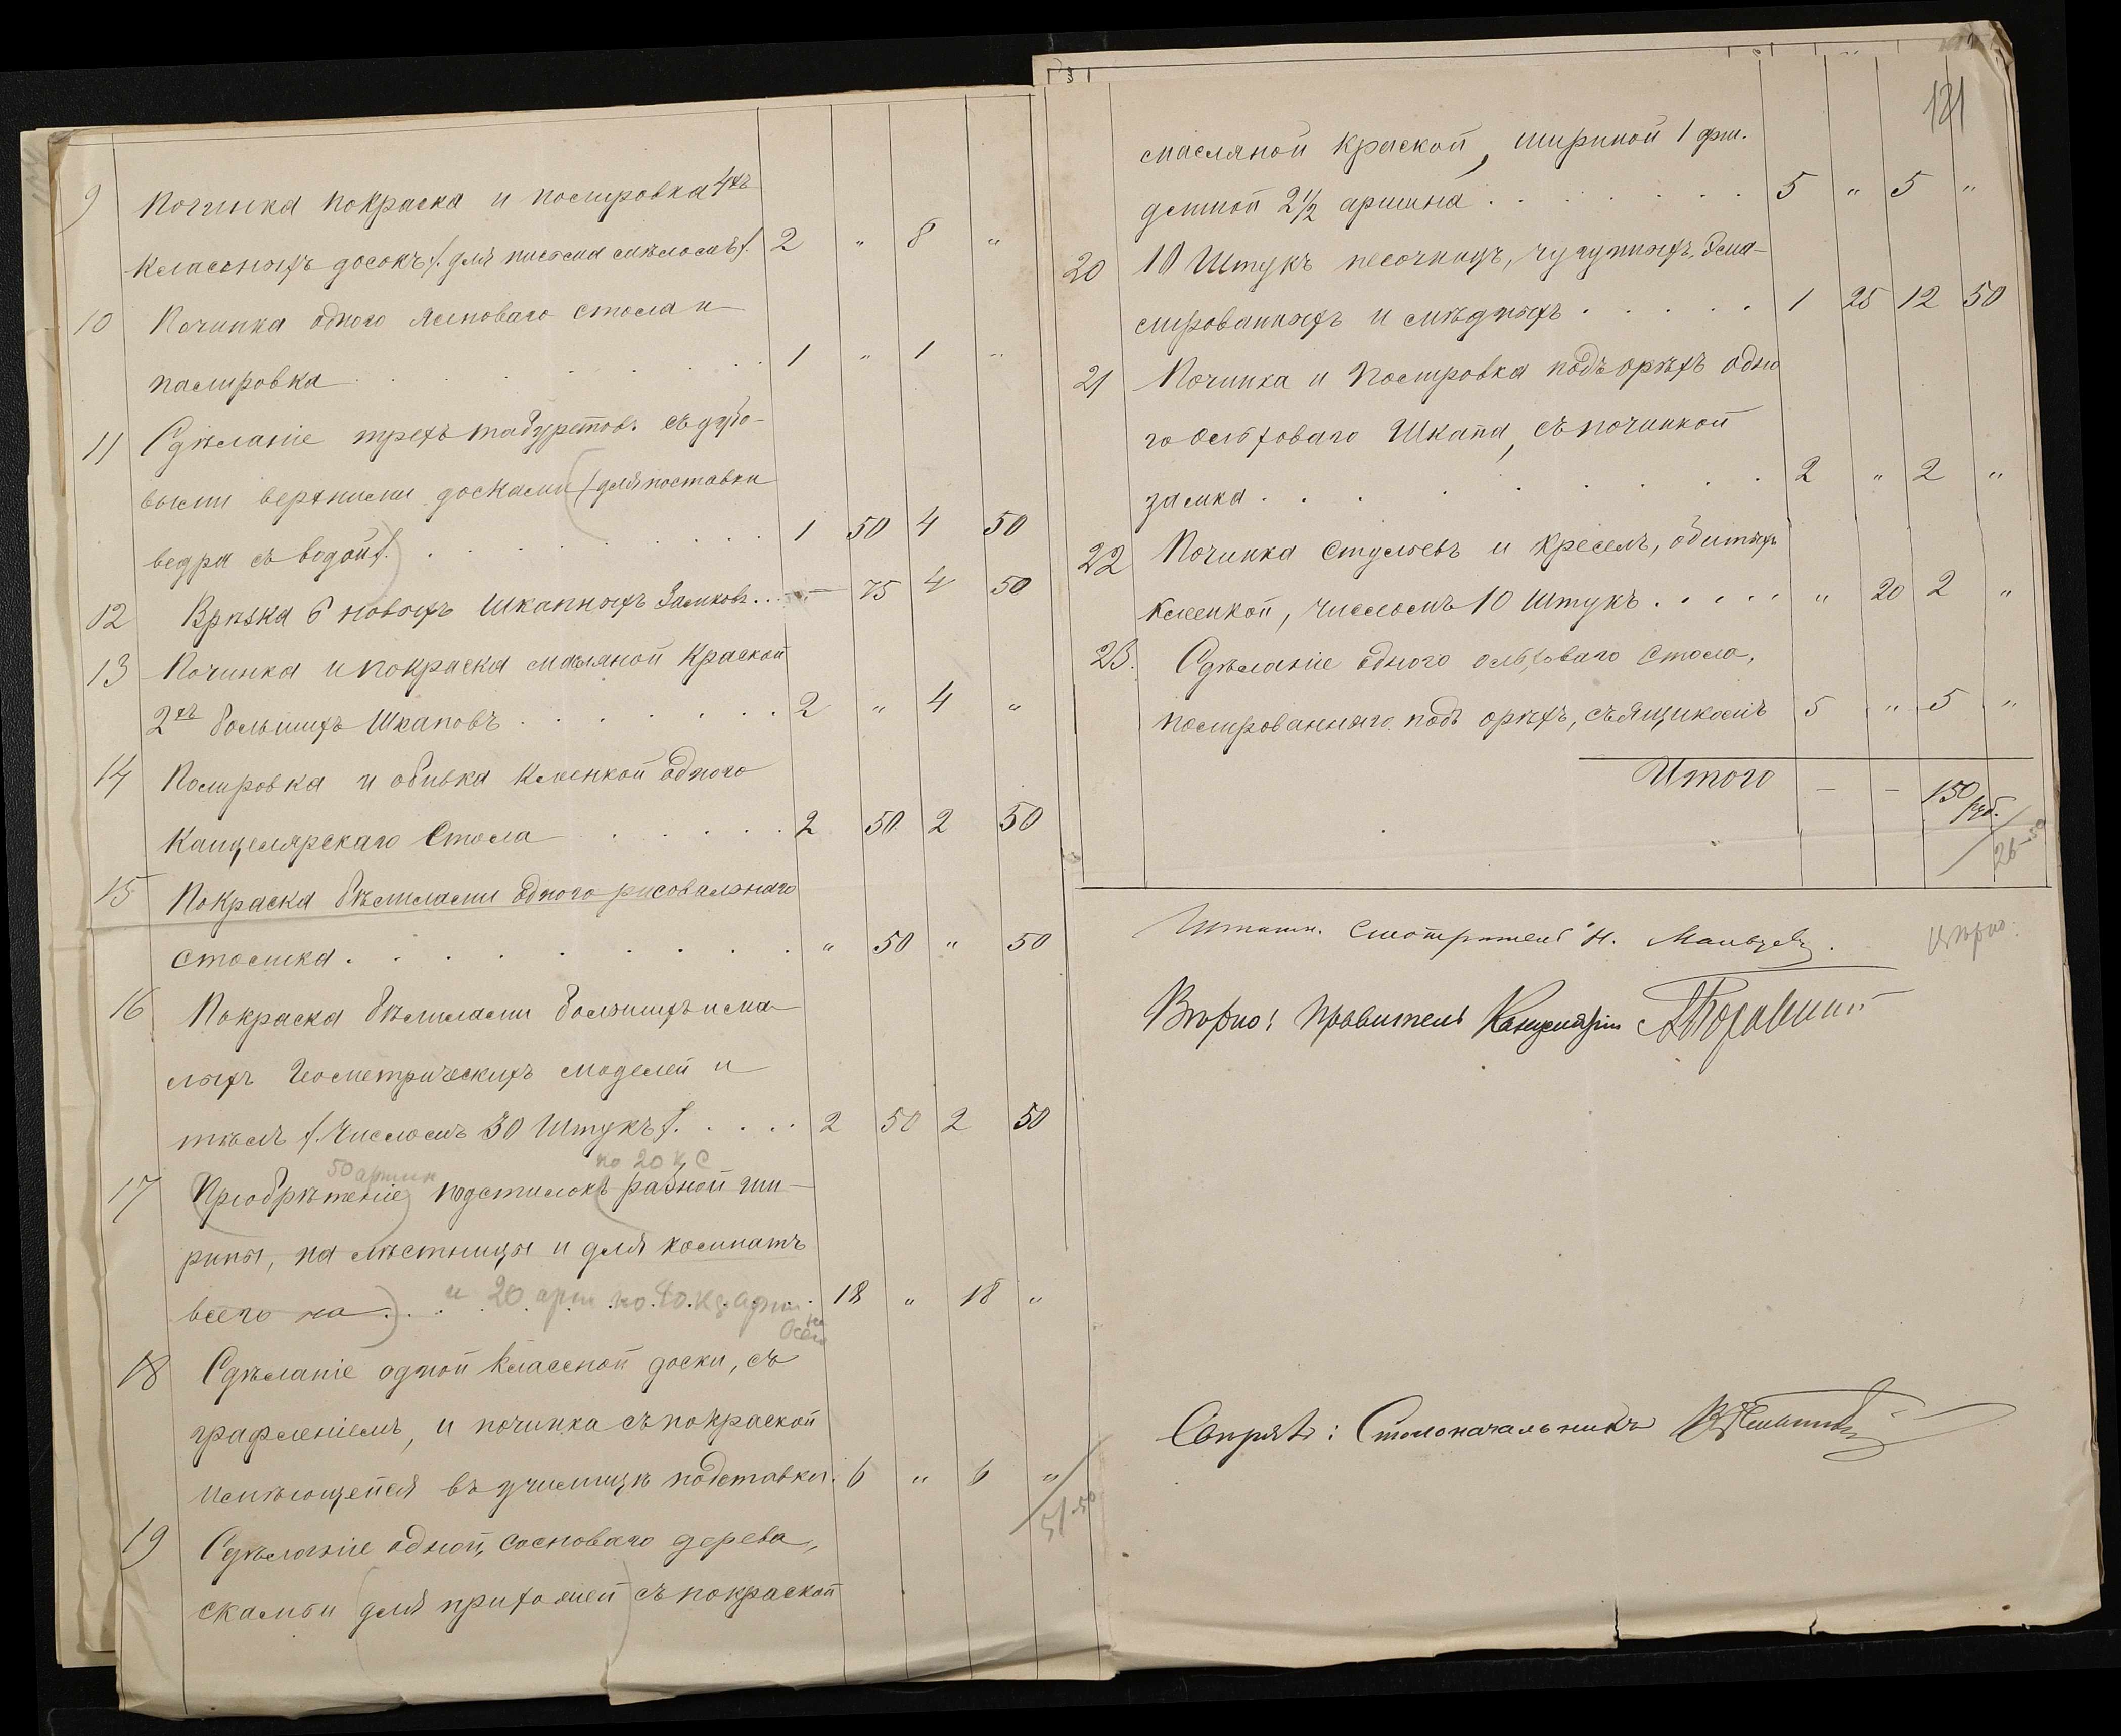 9 Починка покраска и полировка 4хъ
классныхъ досокъ /. для письма мѣломъ /. 2 „ 8 „
10 Починка одного ясеноваго стола и
палировка . . . . . . . . 1 „ 1 „
11 Сдѣланіе трехъ табуретовъ съ дубо-
выми верхними досками (для поставки
ведра съ водой /. . . . . . . . 1 50 4 50
12 Врѣзка 6 новыхъ шкапныхъ замковъ . . . — 75 4 50
13 Починка и покраска масляной краской
2хъ большихъ шкаповъ . . . . . . . 2 „ 4 „
14 Полировка и обивка клеенкой одного
Канцелярскаго Стола . . . . . . 2 50 2 50
15 Покраска бѣлилами одного рисовальнаго
столика . . . . . . . . . „ 50 „ 50
16 Покраска бѣлилами большихъ и ма-
лыхъ Геометрическихъ моделей и
тѣлъ /. Числомъ 30 Штукъ /. . . . . 2 50 2 50
50 аршин по 20 к. С
17 Пріобрѣтеніе подстилокъ разной ши-
рины, на лѣстницы и для комнатъ
всего на . . . и 20 арш по 40 к. з. арш. 18 „ 18 „
18 Сдѣланіе одной классной доски, съ
графленіемъ, и починка съ покраской
имѣющейся въ училищѣ подставки. 6 „ 6 „
51-50
19 Сдѣланіе одной, сосноваго дерева,
скамьи (для прихожей) съ покраской
121
масляной краской, шириной 1 арш.
длиной 2 1/2 аршина . . . . . . 5 „ 5 „
20 10 Штукъ песочницъ, чугунныхъ, эма-
лированныхъ и мѣдныхъ . . . . . 1 25 12 50
21 Починка и полировка подъ орѣхъ одно
го ольховаго Шкапа, съ починкой
замка . . . . . . . . . 2 „ 2 „
22 Починка стульевъ и креселъ, обитыхъ
клеенкой, числомъ 10 Штукъ . . . . . „ 20 2 „
23. Сдѣланіе одного ольховаго стола,
полированнаго подъ орѣхъ, съ ящикомъ 5 „ 5 „
Итого — — 150 руб.
26-50
Штатн. Смотритель Н. Мальцевъ.
Вѣрно.
Вѣрно: Правитель Канцеляріи
Свѣрялъ: Столоначальникъ